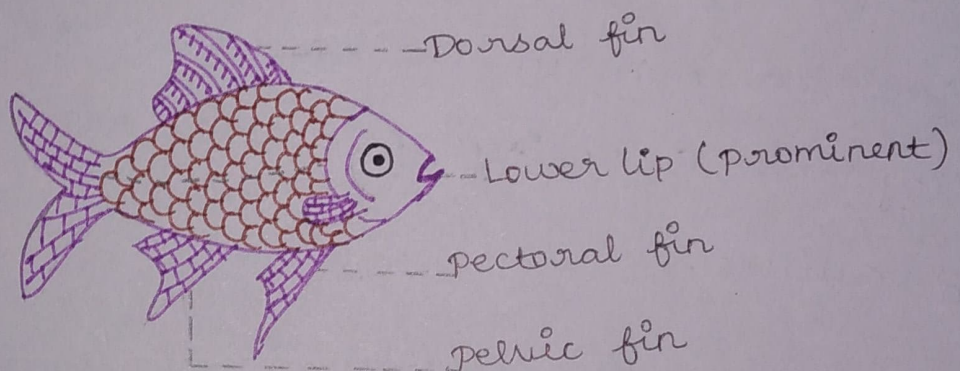 Dorsal fin
Lower lip (prominent)
pectoral fin
pelvic fin